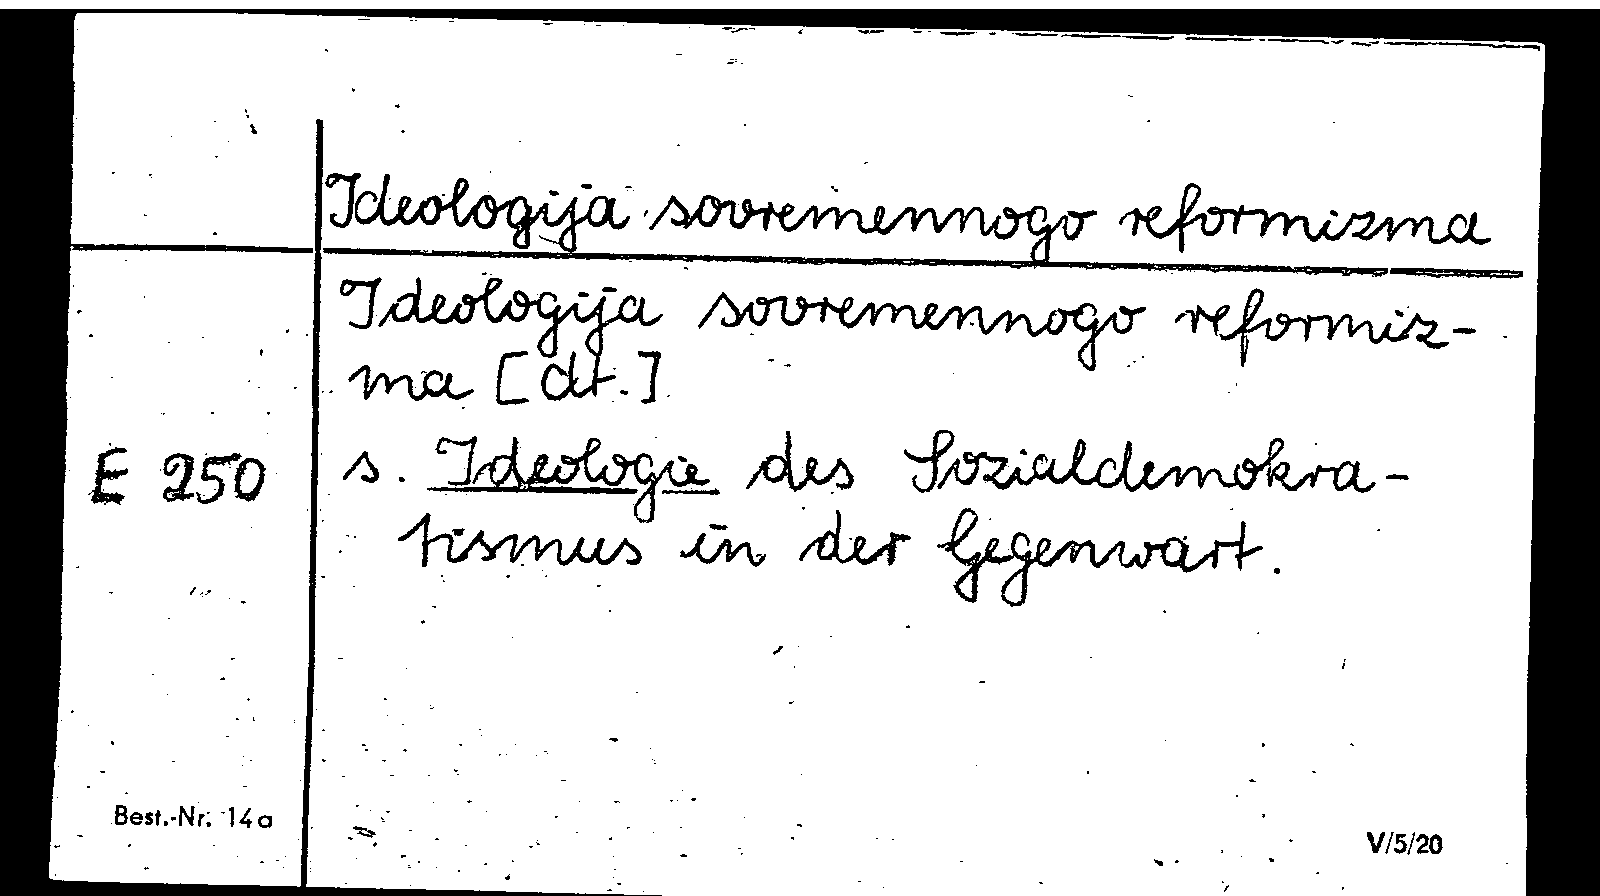 Ideologija sovremennogo reformizma
Ideologija sovremennogo reformiz-
ma [dt.]
E 250 s. Ideologie des Sozialdemokra-
tismus in der Gegenwart.
Best.-Nr. 14a
V/5/20